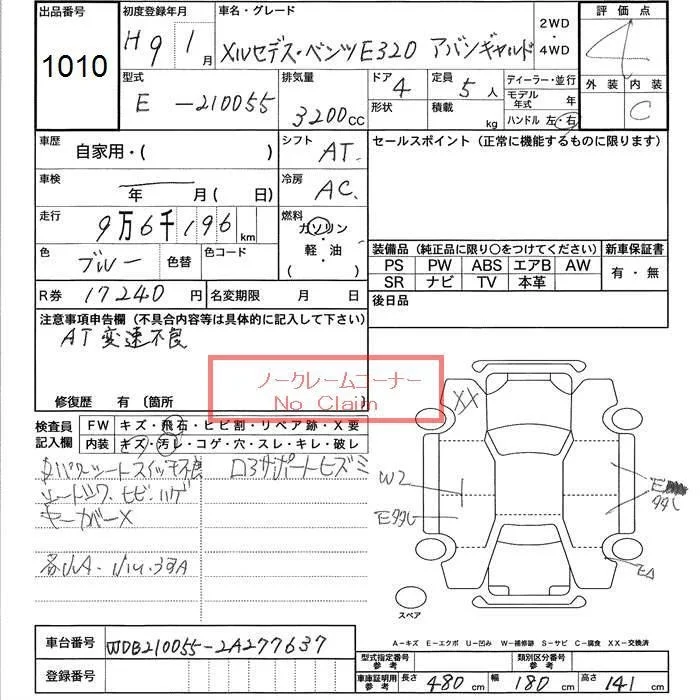 出品番号
1010
初度登録年月
H9 1月
車名・グレード
メルセデス・ベンツE320 アバンギャルド
2WD
・
4WD
評価点
4
外装 内装
C
型式
E-210055
排気量
3200CC
ドア
4
形状
定員
5人
積載
kg
ディーラー・並行
モデル年式 年
ハンドル 左・右
車歴
自家用・( )
シフト
AT
セールスポイント(正常に機能するものに限ります)
車検
年 月(日)
冷房
AC
走行
9万6千196km
燃料
ガソリン
・
軽・油
・
色
ブルー
色替
色コード
装備品(純正品に限り○をつけてください)
新車保証書
PS PW ABS エアB AW
SR ナビ TV 本革
有・無
R券 17240円
名変期限 月 日
後日品
注意事項申告欄(不具合内容等は具体的に記入して下さい)
AT変速不良
ノークレームコーナー
No Claim
修復歴 有(箇所
検査員記入欄
FW キズ・飛石・ヒビ割・リペア跡・X要
内装 キズ・汚レ・コゲ・穴・スレ・キレ・破レ
パワーシートスイッチ不良
ロアサポートヒズミ
XX
W2
Eタタレ
E
タタレ
EA
スペア
A-キズ E-エクボ U-凹み W-補修跡 S-サビ C-腐食 XX-交換済
車台番号
WDB210055-2A277637
登録番号
型式指定番号
参考
類別区分番号
参考
車庫証明用
参考
長さ 480cm 幅 180cm 高さ 141cm